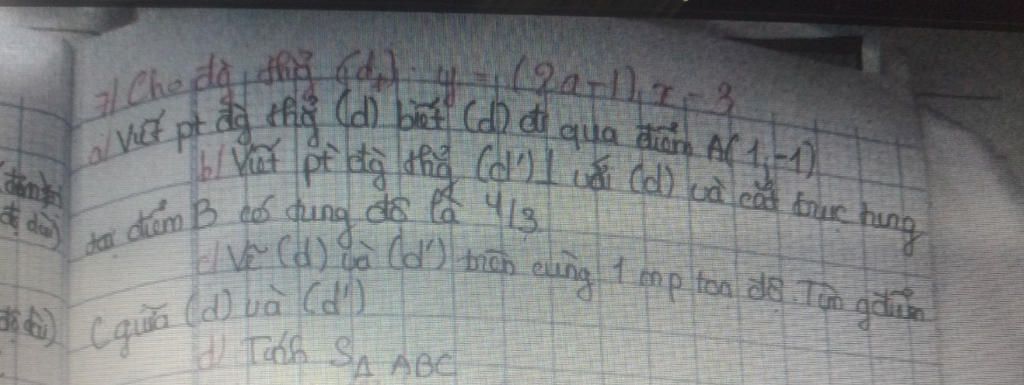 7/ Cho đg thg (d): y = (2a-1).x - 3
a/ Viết pt đg thg (d) biết (d) đi qua điểm A(1,-1)
b/ Viết pt đg thg (d') ⊥ với (d) và cắt trục tung
tại điểm B có tung độ là 4/3
c/ Vẽ (d) và (d') trên cùng 1 mp toạ độ. Tìm gđiểm
C giữa (d) và (d')
d/ Tính S Δ ABC